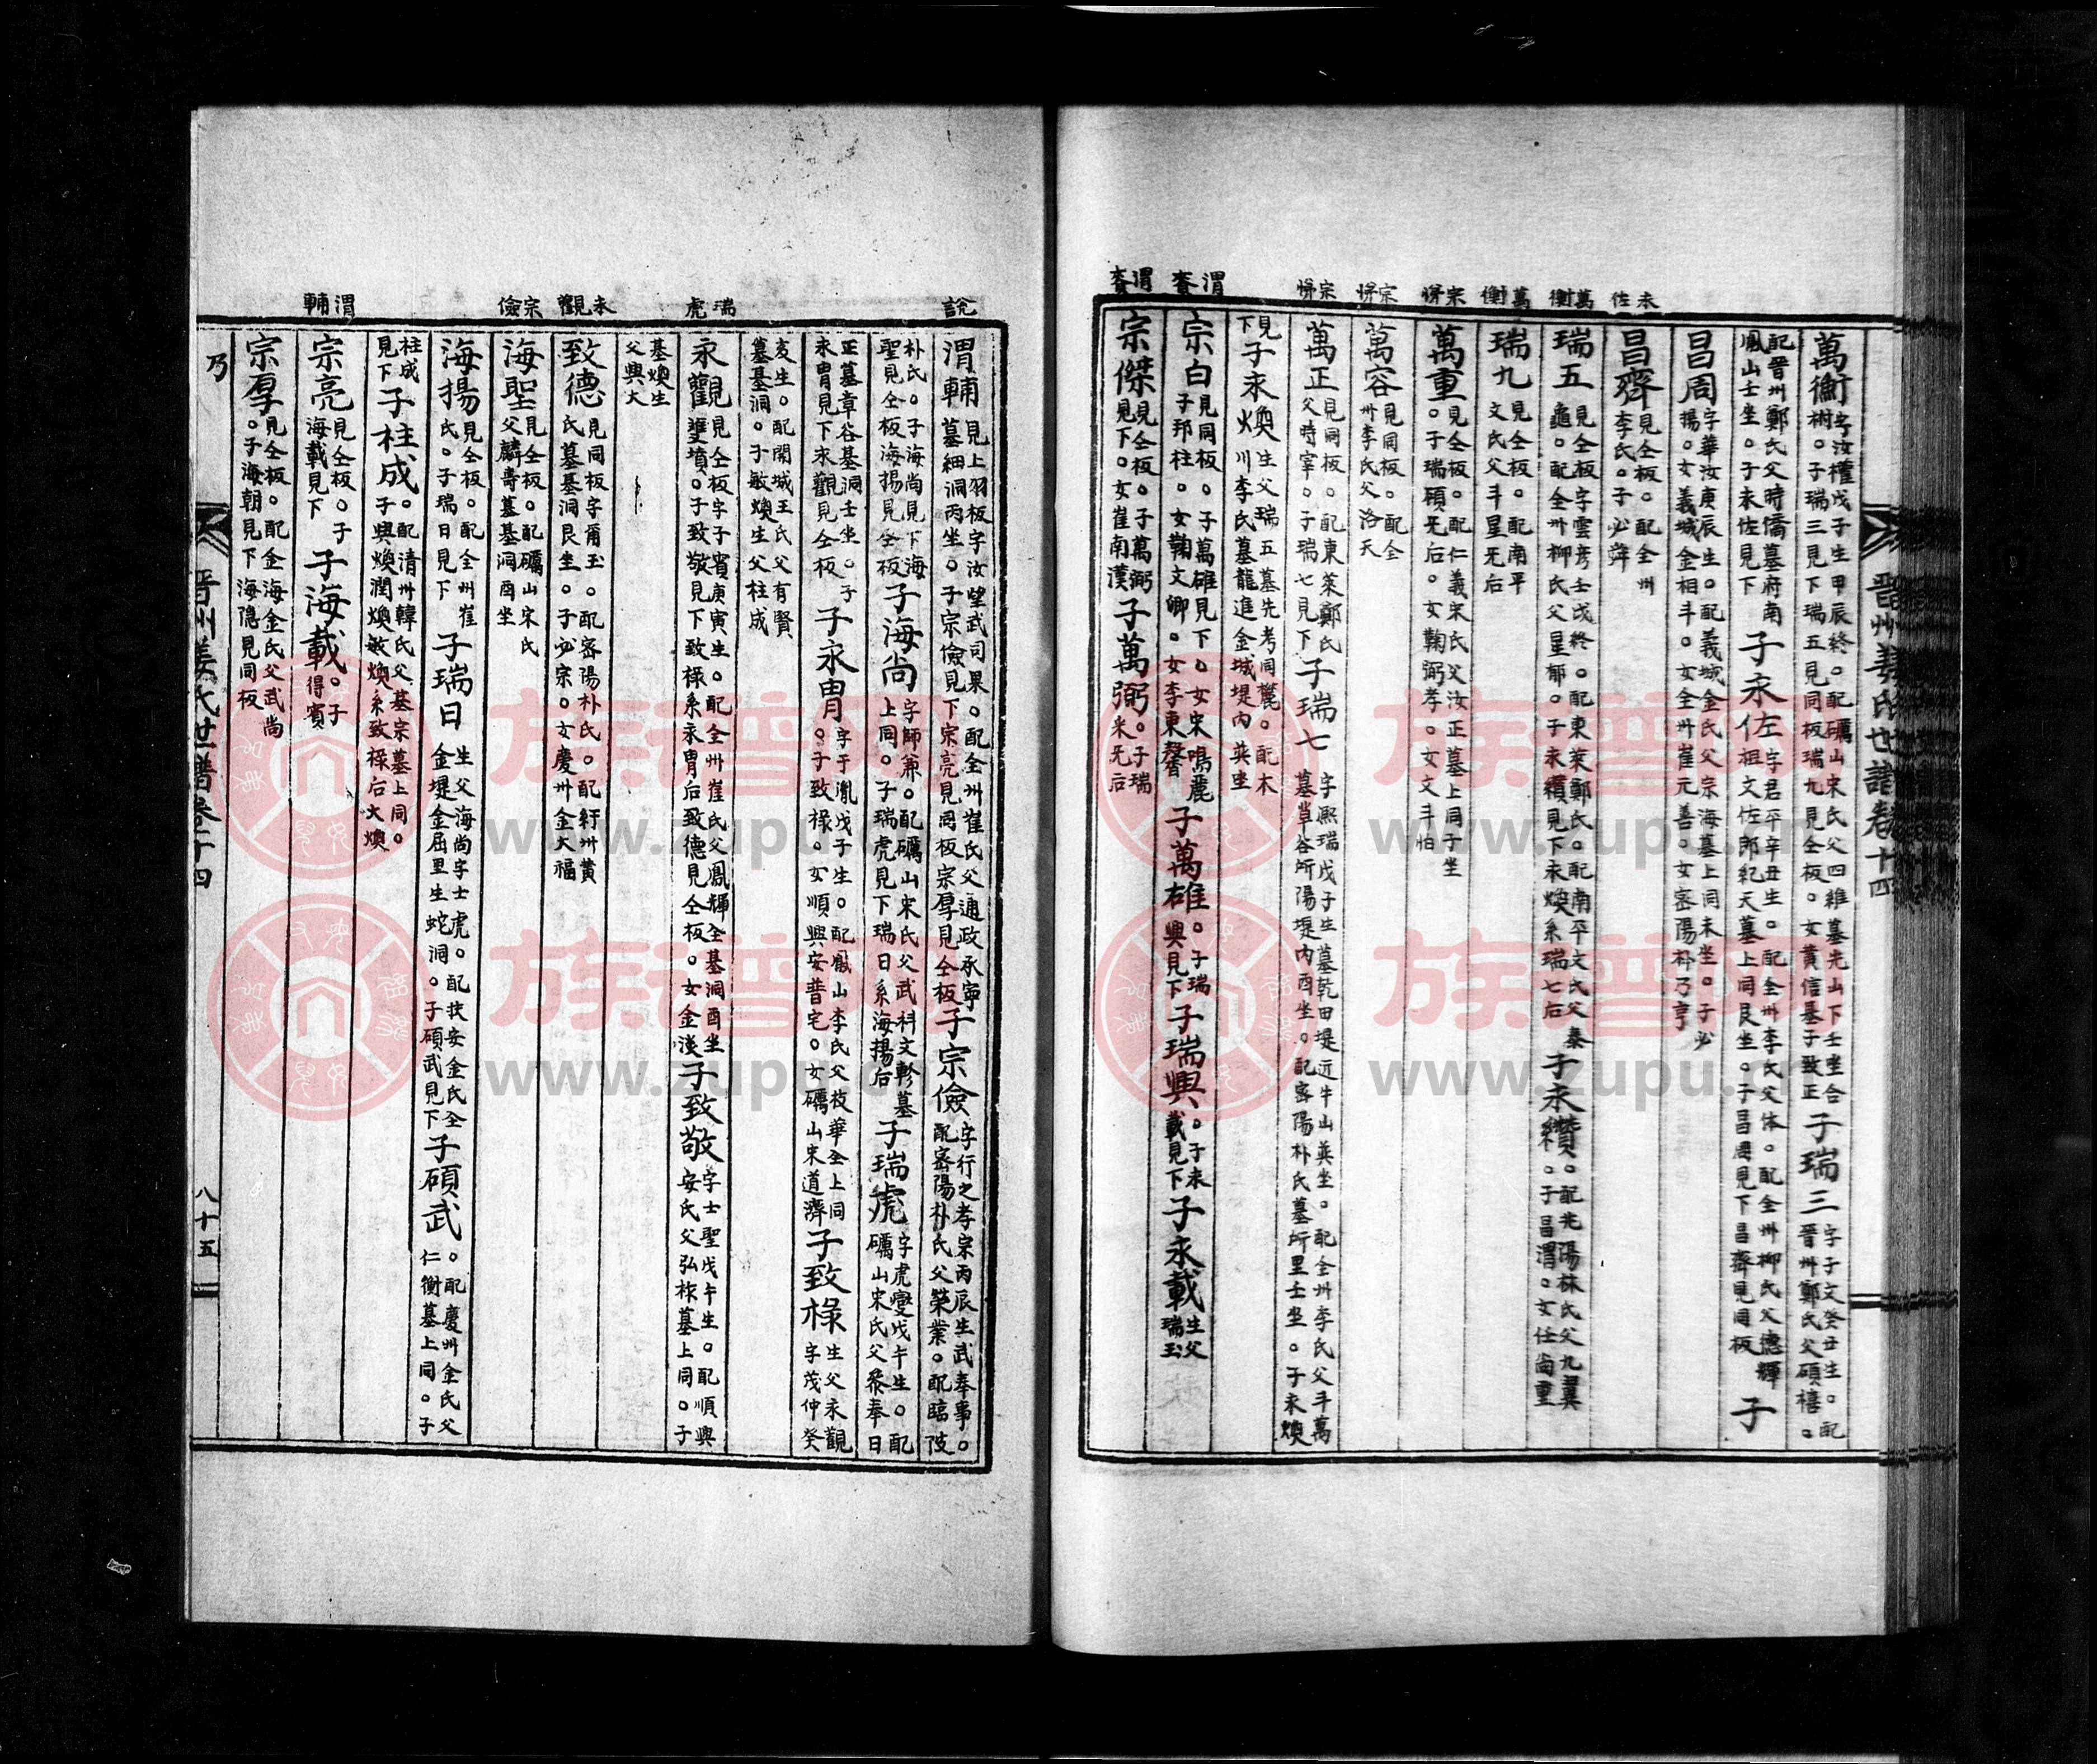 萬衡字汝權戊子生甲辰終。配礪山宋氏父四維墓先山下壬坐合
樹。子瑞三見下瑞五見同板瑞九見仝板。女黃信基子致正
子瑞三字子文癸丑生。配
晋州鄭氏父碩禧。
配晋州鄭氏父時僑墓府南
鳳山壬坐。子永佐見下
子永佐字君平辛丑生。配仝州李氏父休。配仝州柳氏父德輝
祖文佐郎紀天墓上同艮坐。子昌周見下昌齊見同板
子
昌周字華汝庚辰生。配義城金氏父宗海墓上同未坐。子必
揚。女義城金相斗。女仝州崔元善。女密陽朴乃亨
永佐
昌齊見仝板。配仝州
李氏。子必舜
萬衡
瑞五見仝板字雲彦壬戌終。配東萊鄭氏。配南平文氏父泰
龜。配仝州柳氏父星郁。子永纘見下永煥系瑞七后
子永纘。配光陽林氏父九翼
。子昌渭。女任尚重
萬衡
瑞九見仝板。配南平
文氏父斗星无后
萬重見仝板。配仁義宋氏父汝正墓上同子坐
。子瑞碩无后。女鞠弼孝。女文斗怕
萬容見同板。配仝
州李氏父洛天
萬正見同板。配東萊鄭氏
父時宰。子瑞七見下
子瑞七字熙瑞戊子生墓乾田堤近牛山巽坐。配仝州李氏父斗萬
墓草谷所陽堤內酉坐。配密陽朴氏墓圻里壬坐。子永煥
見
下
子永煥生父瑞五墓先考同麓。配木
川李氏墓龍進金城堤內巽坐
渭賚
宗白見同板。子萬雄見下。女宋鳴麗
子邦柱。女鞠文卿。女李東馨
子萬雄。子瑞
興見下
子瑞興。子永
載見下
子永載生父
瑞玉
渭賚
宗傑見仝板。子萬弼
見下。女崔南漢
子萬弼。子瑞
采无后
晋州姜氏世譜卷十四
說
渭輔見上羽板字汝望武司果。配仝州崔氏父通政承寧
墓細洞丙坐。子宗儉見下宗亮見同板宗厚見仝板
子宗儉字行之孝宗丙辰生武奉事。
配密陽朴氏父榮業。配臨陂
朴氏。子海尚見下海
聖見仝板海揚見仝板
子海尚字師兼。配礪山宋氏父武科文軫墓
上同。子瑞虎見下瑞日系海揚后
瑞虎字虎變戊午生。配
礪山宋氏父粲奉日
正墓章谷基洞壬坐。子
永胄見下永觀見仝板
子永胄字于胤戊子生。配鳳山李氏父枝華仝上同
。子致祿。女順興安普宅。女礪山宋道濟
子致祿生父永觀
字茂仲癸
亥生。配開城王氏父有賢
墓基洞。子敏煥生父柱成
瑞虎
永觀見仝板字子賓庚寅生。配仝州崔氏父鳳輝仝基洞酉坐
雙墳。子致敬見下致祿系永胄后致德見仝板。女金漢
子致敬字士聖戊午生。配順興
安氏父弘祚墓上同。子
基煥生
父興大
永觀
致德見同板字甯玉。配密陽朴氏。配紆州黃
氏墓基洞艮坐。子必宗。女慶州金大福
宗儉
海聖見仝板。配礪山宋氏
父麟壽墓基洞酉坐
海揚見仝板。配仝州崔
氏。子瑞日見下
子瑞日生父海尚字士虎。配扶安金氏仝
金堤金屈里生蛇洞。子碩武見下
子碩武。配慶州金氏父
仁衡墓上同。子
柱成
見下
子柱成。配清州韓氏父基宗墓上同。
子興煥潤煥敏煥系致祿后大煥
渭輔
宗亮見仝板。子
海載見下
子海載。子
得賓
宗厚見仝板。配金海金氏父武尚
。子海朝見下海隱見同板
乃
晋州姜氏世譜卷十四
八十五
族谱网
www.zupu.cn